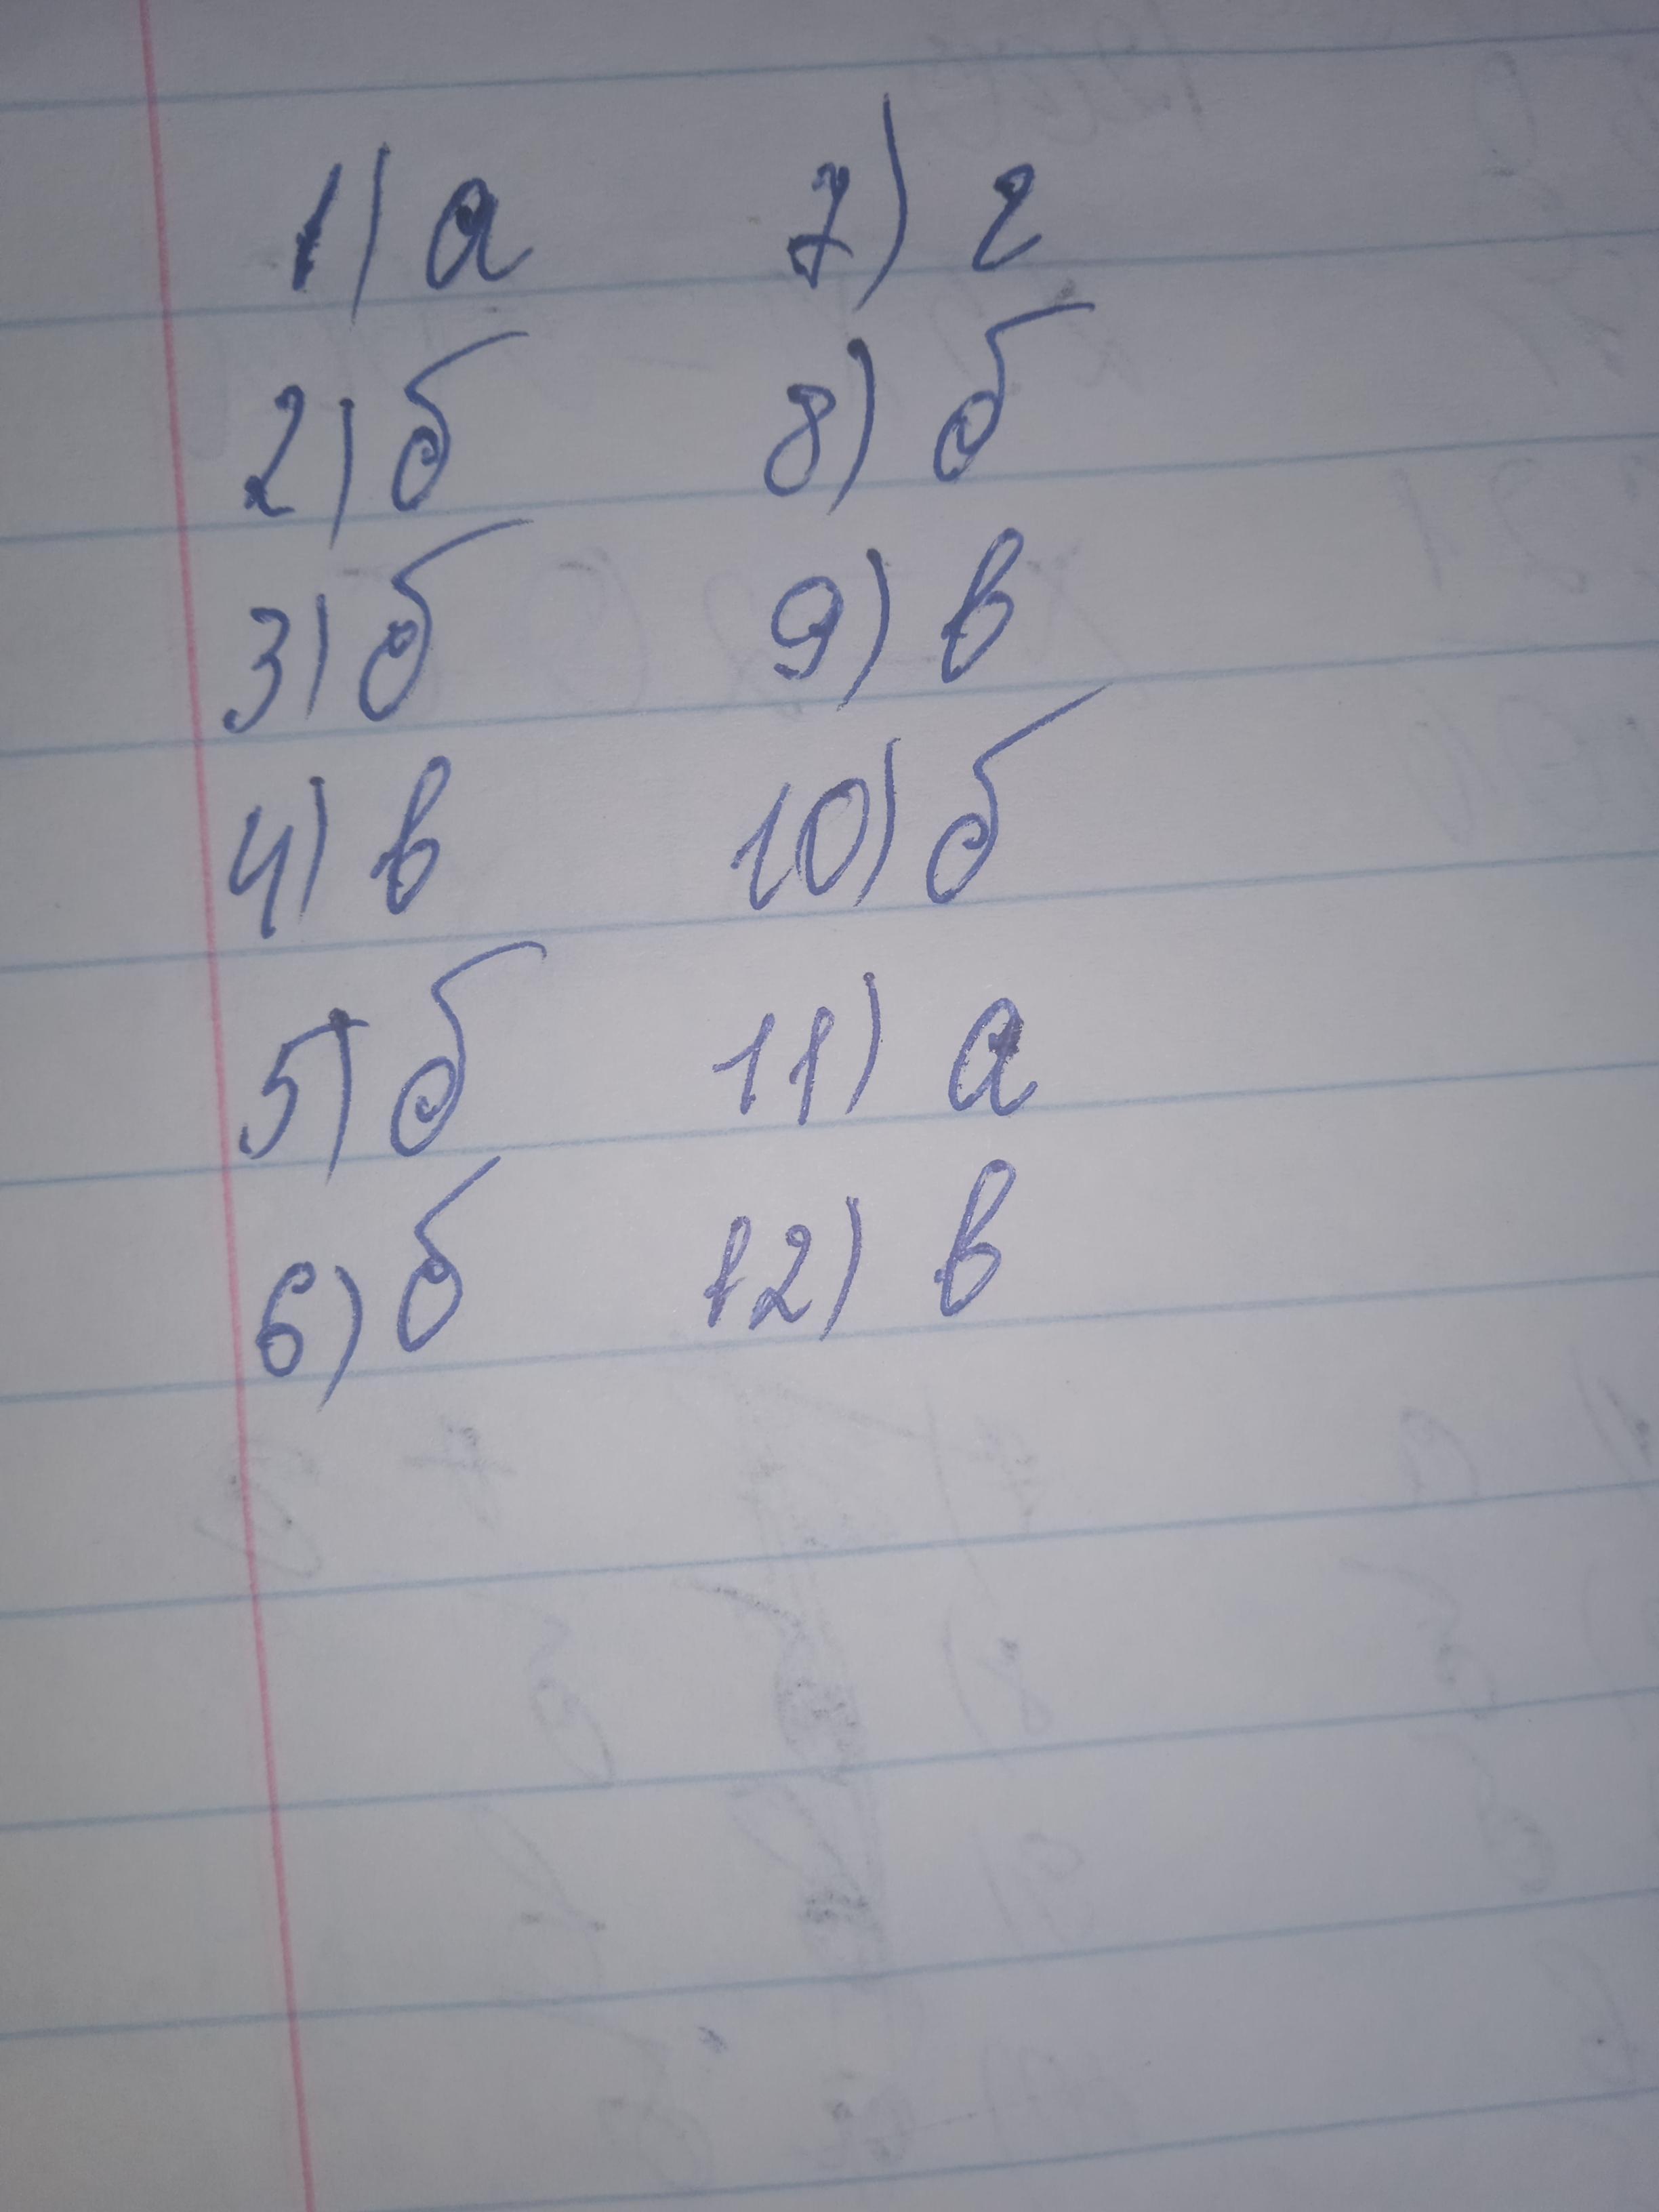 1) а
2) б
3) б
4) в
5) б
6) б
7) г
8) б
9) в
10) б
11) а
12) в